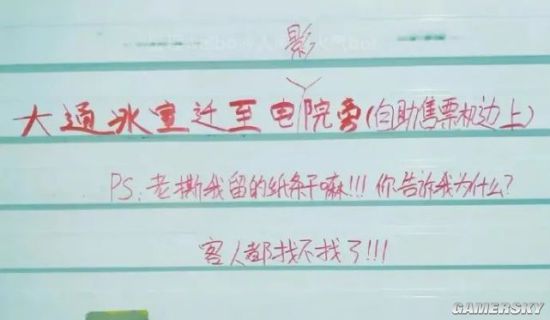 影
大通冰室迁至电院旁(自助售票机边上)
PS.老撕我留的纸条干嘛!!!你告诉我为什么?
客人都找不找了!!!
GAMERSKY